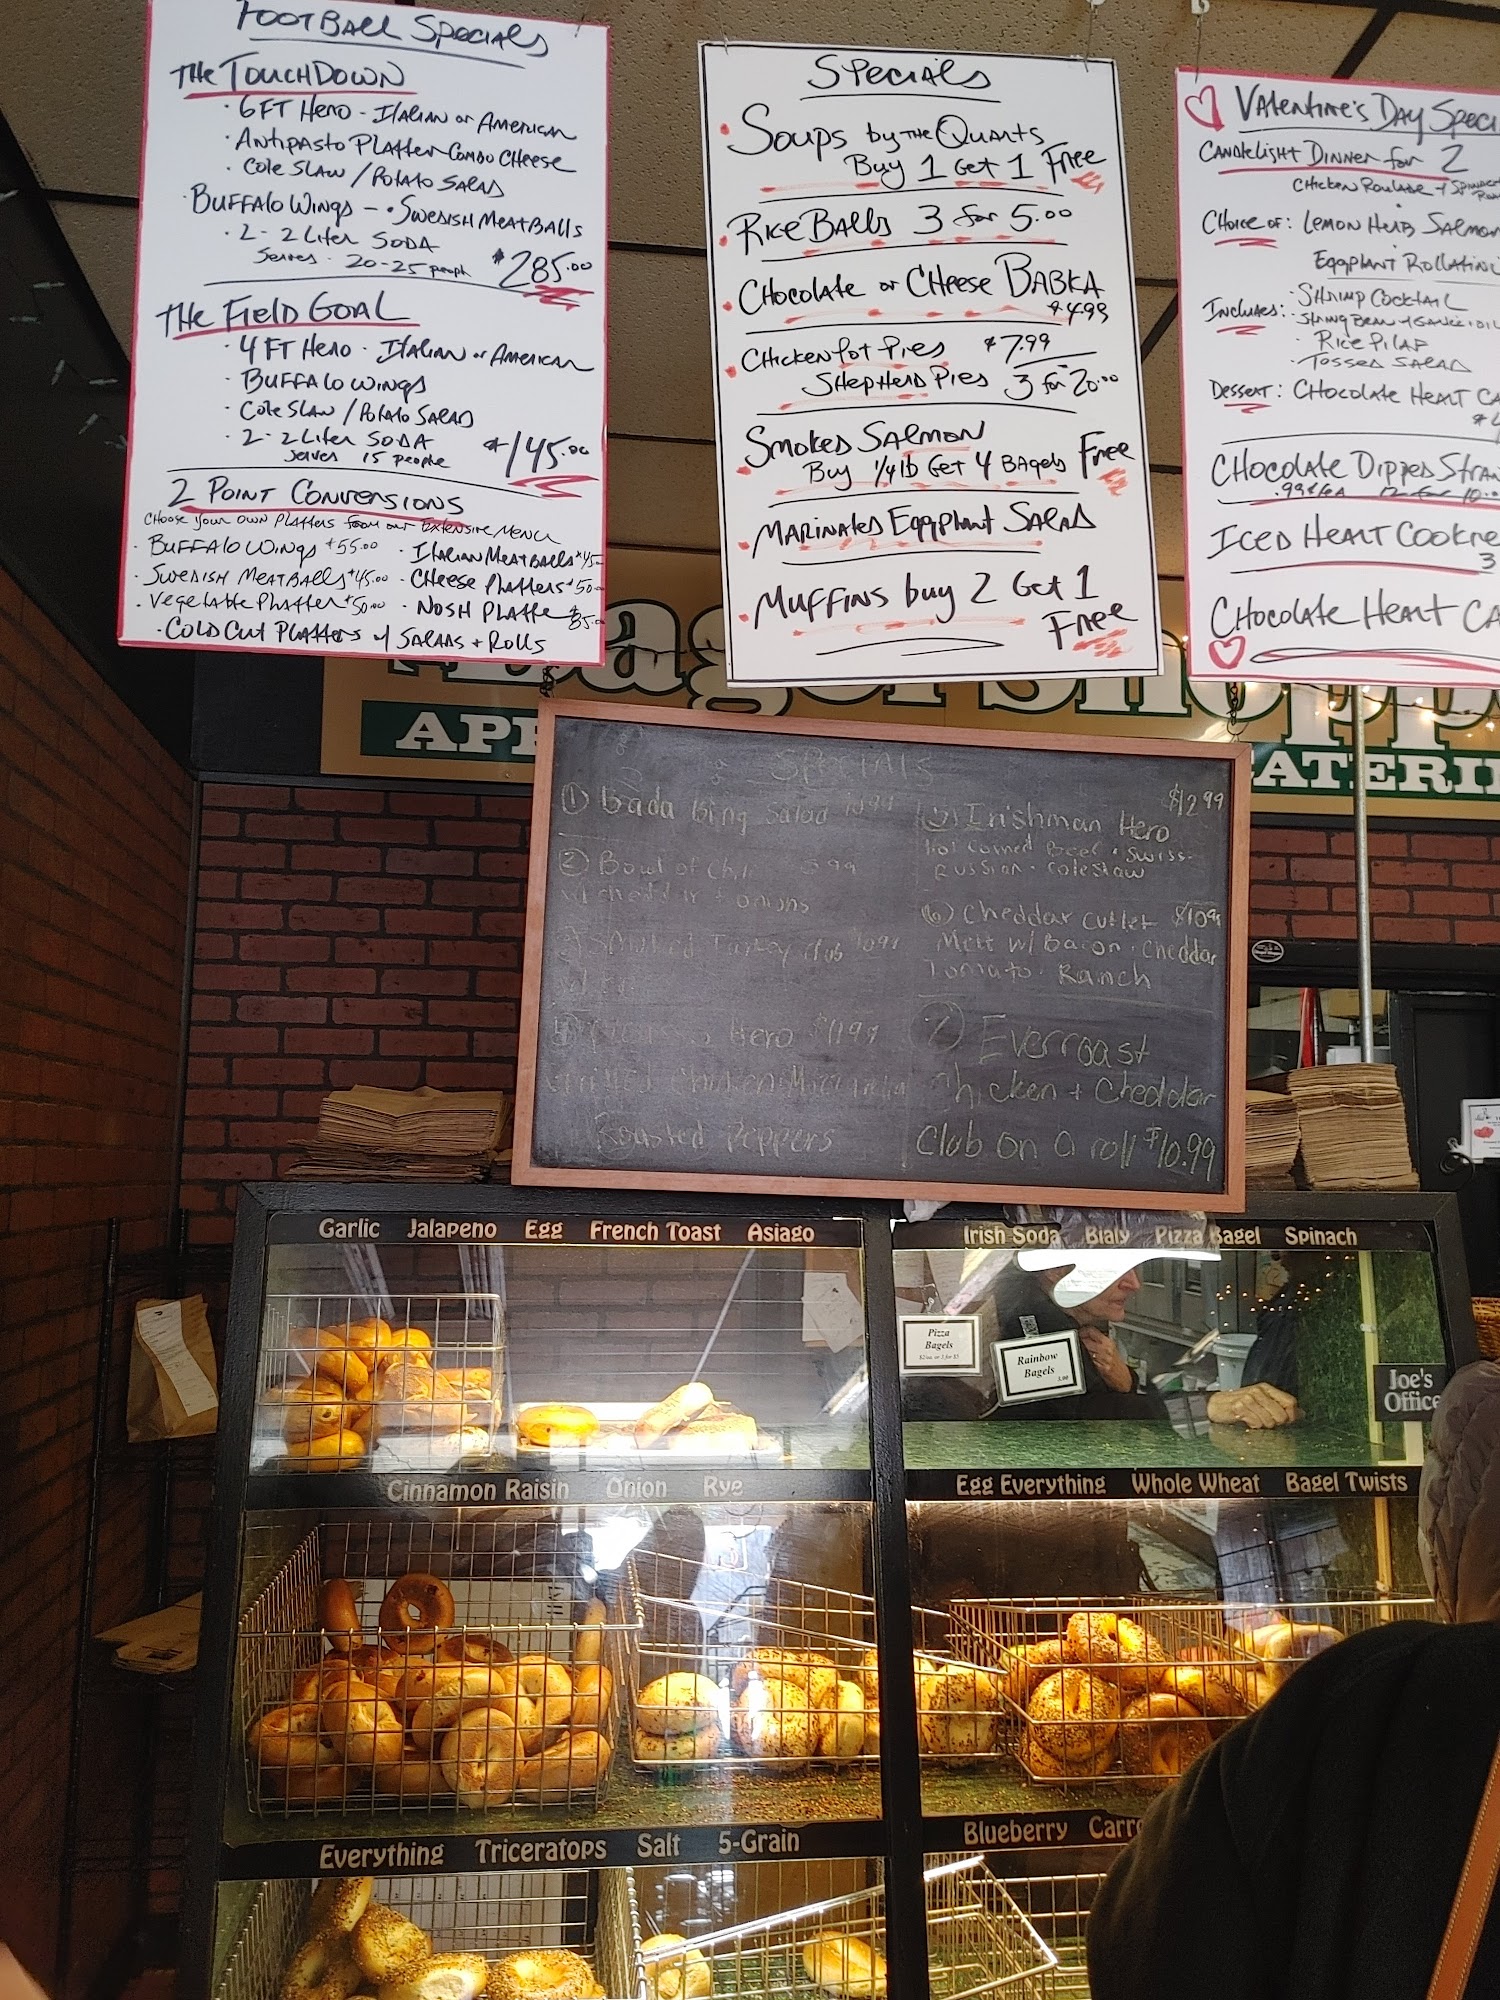 FOOTBALL SPECIALS
THE TOUCHDOWN
· 6FT HERO - ITALIAN or AMERICAN
· ANTIPASTO PLATTER COMBO CHEESE
· COLE SLAW / POTATO SALAD
BUFFALO WINGS - · SWEDISH MEATBALLS
· 2 - 2 LITER SODA
Serves · 20-25 people $285.00
THE FIELD GOAL
· 4 FT HERO · ITALIAN or AMERICAN
· BUFFALO WINGS
· COLE SLAW / POTATO SALAD
· 2 - 2 LITER SODA
serves 15 people $145.00
2 POINT CONVERSIONS
CHOOSE YOUR OWN PLATTERS FROM OUR EXTENSIVE MENU
· BUFFALO WINGS $55.00 · ITALIAN MEATBALLS $45.
· SWEDISH MEATBALLS $45.00 · CHEESE PLATTERS $50
· VEGETABLE PLATTER $50.00 · NOSH PLATTE $85.00
· COLD CUT PLATTERS w/ SALADS + ROLLS
SPECIALS
· SOUPS by THE QUARTS
BUY 1 GET 1 FREE
· RICE BALLS 3 for 5.00
· CHOCOLATE or CHEESE BABKA
$4.99
· CHICKEN POT PIES $7.99
SHEPHERD PIES 3 for 20.00
· SMOKED SALMON
BUY 1/4 lb GET 4 BAGELS FREE
· MARINATED EGGPLANT SALAD
· MUFFINS buy 2 GET 1
FREE
VALENTINE'S DAY SPECI
CANDLELIGHT DINNER for 2
CHICKEN ROULADE
CHOICE OF: LEMON HERB SALMON
EGGPLANT ROLLATINI
INCLUDES: · SHRIMP COCKTAIL
· STRING BEAN
· RICE PILAF
· TOSSED SALAD
DESSERT: CHOCOLATE HEART CA
CHOCOLATE DIPPED STRA
.99 EA 12 for 10.
ICED HEART COOKIE
3
CHOCOLATE HEART CA
Bagel Shopp
APP
CATERI
SPECIALS
① Bada Bing Salad 10.99
② Bowl of Chili 5.99
w/ cheddar + onions
Smoked Turkey club 10.99
Hero $11.99
grilled Chicken · Mozzarella
Roasted Peppers
Irishman Hero $12.99
Hot Corned Beef · Swiss
Russian · coleslaw
⑥ Cheddar Cutlet $10.99
Melt w/ Bacon · Cheddar
Tomato · Ranch
⑦ Everroast
Chicken + Cheddar
Club on a roll $10.99
Garlic Jalapeno Egg French Toast Asiago
Irish Soda Bialy Pizza Bagel Spinach
Pizza
Bagels
$2/ea. or 3 for $5
Rainbow
Bagels
3.00
Joe's
Office
Cinnamon Raisin Onion Rye
Egg Everything Whole Wheat Bagel Twists
Everything Triceratops Salt 5-Grain
Blueberry Carr